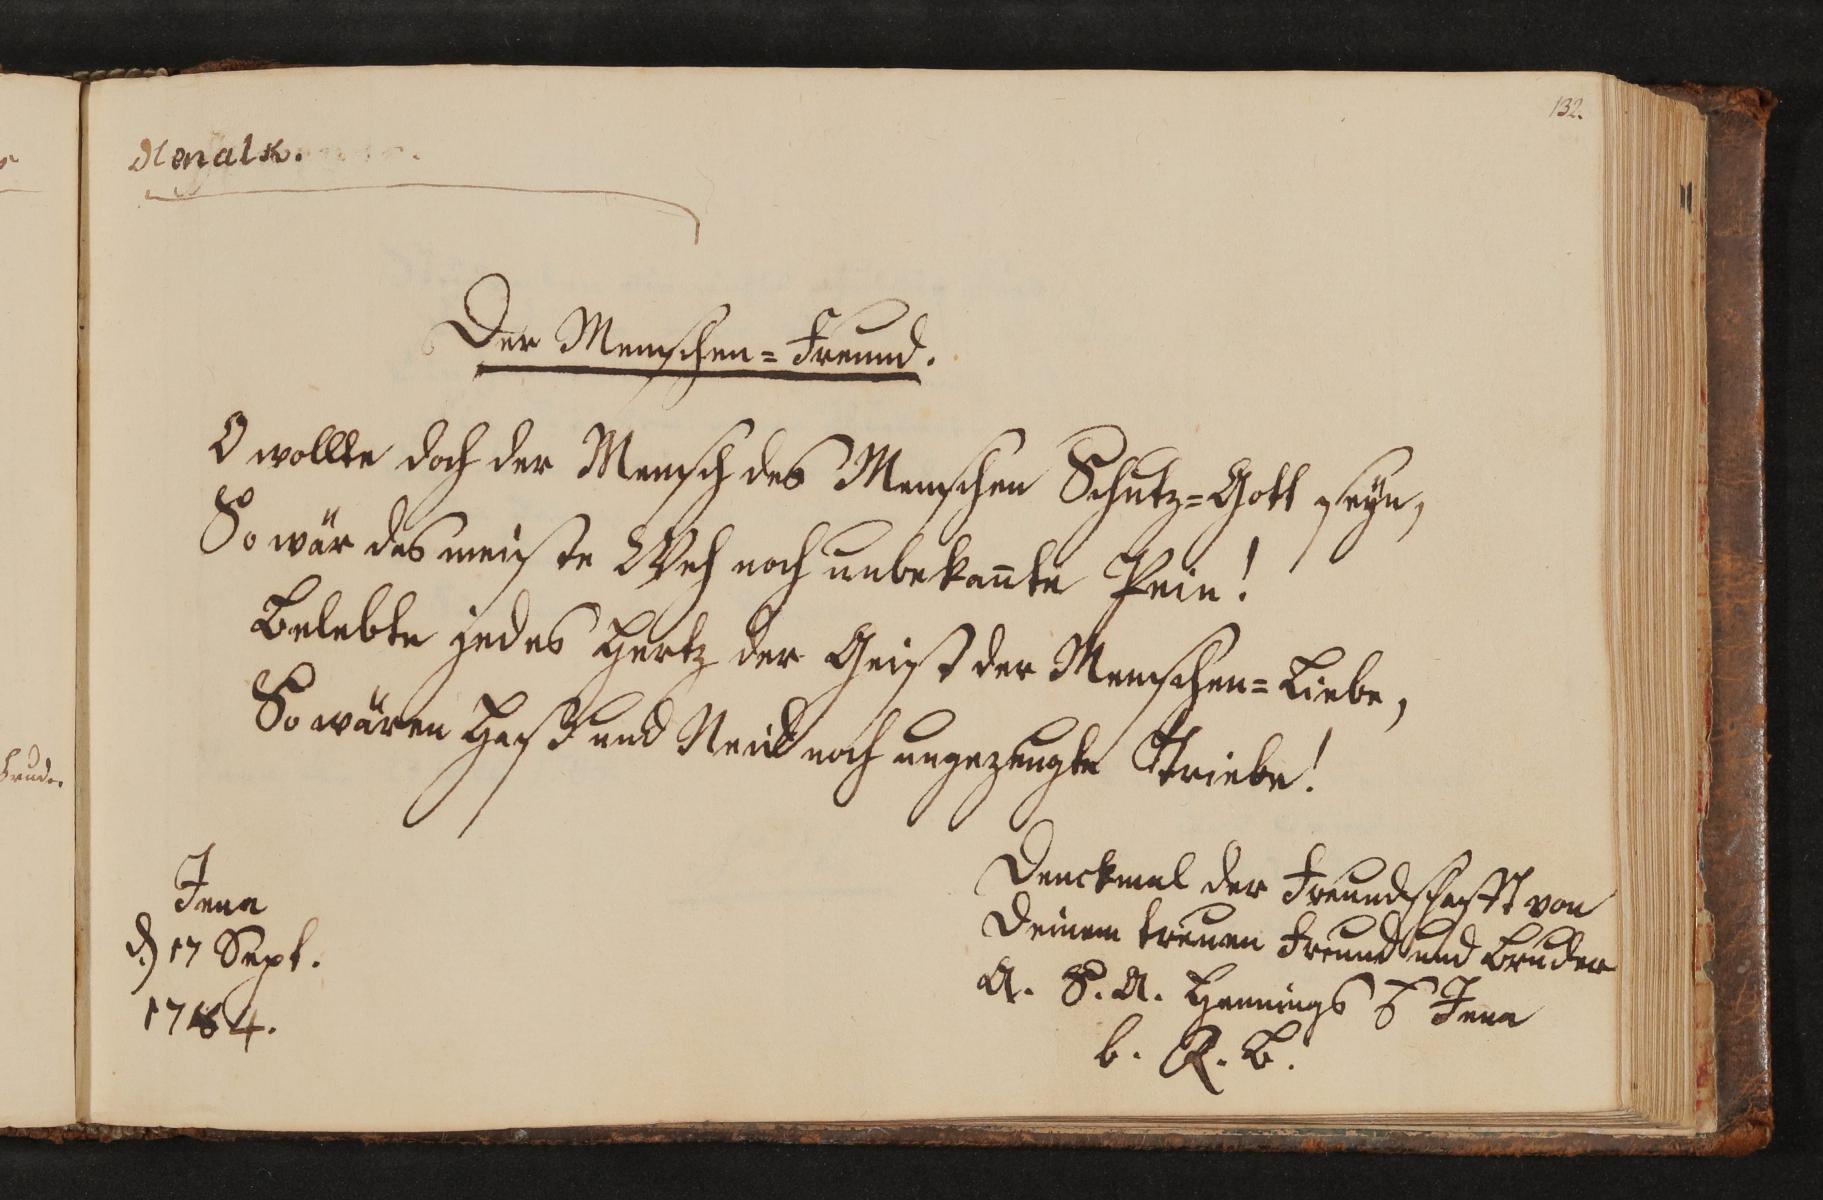 132.
Menalk.
Der Menschen=Freund.
O wollte doch der Mensch des Menschen Schutz=Gott seyn,
So wär das meiste Weh noch unbekan̅te Pein!
Belebte jedes Hertz der Geist der Menschen=Liebe,
So wären Haß und Neid noch ungezeugte Triebe!
Jena
d) 17 Sept.
1764.
Denckmal der Freundschafft von
Deinem treuen Freund und Bruder
A. S. A. Hennings Jena
b. R. B.